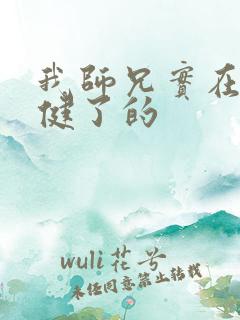 我師兄實在
健了的
wuli花兮
未经同意禁止转载